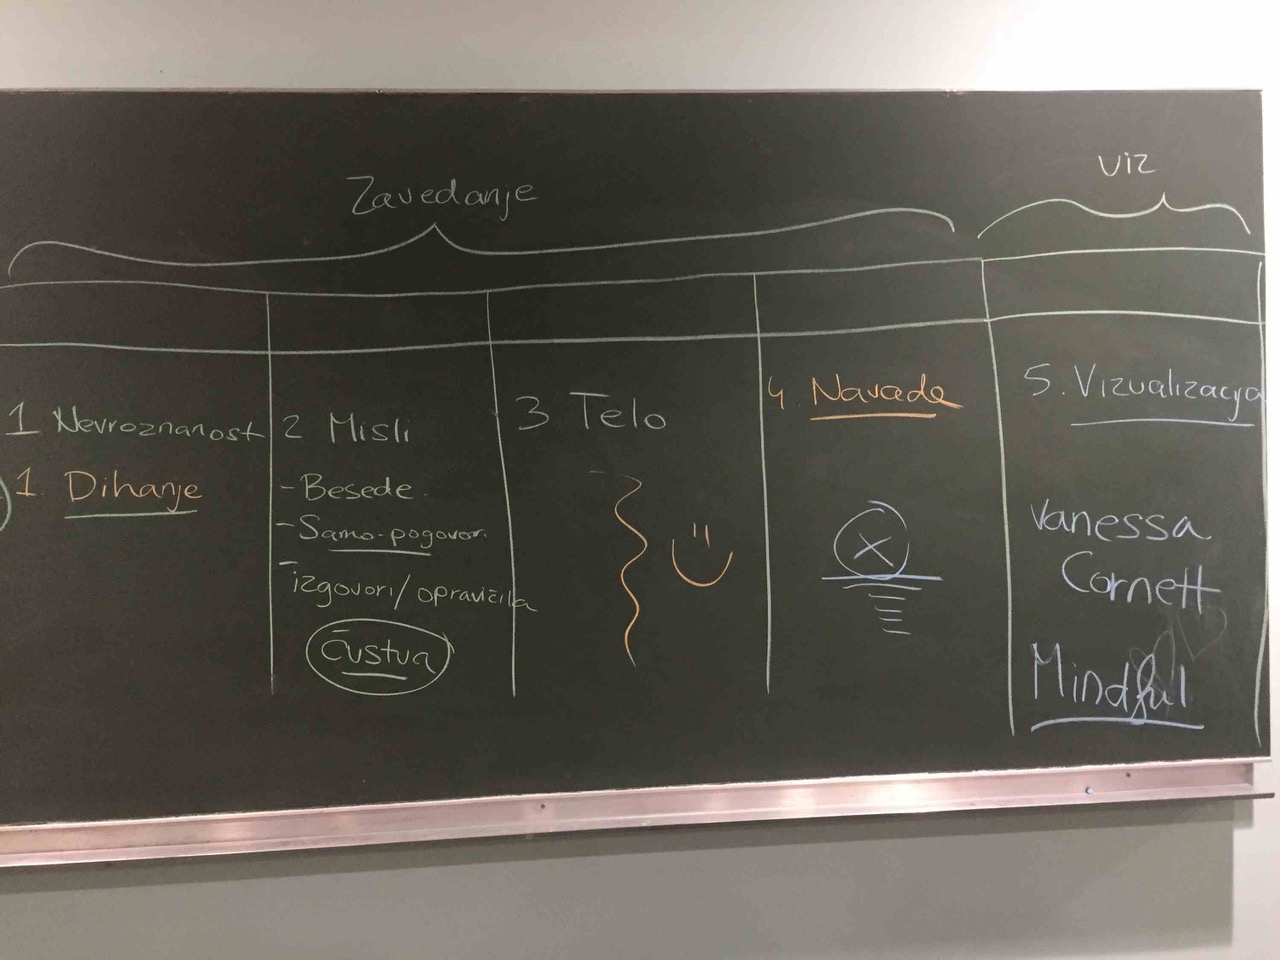 Zavedanje
viz
1 Nevroznanost
1. Dihanje
2 Misli
- Besede
- Samo-pogovor.
- izgovori/opravičila
čustva
3 Telo
4. Navade
5. Vizualizacija
Vanessa
Cornett
Mindful